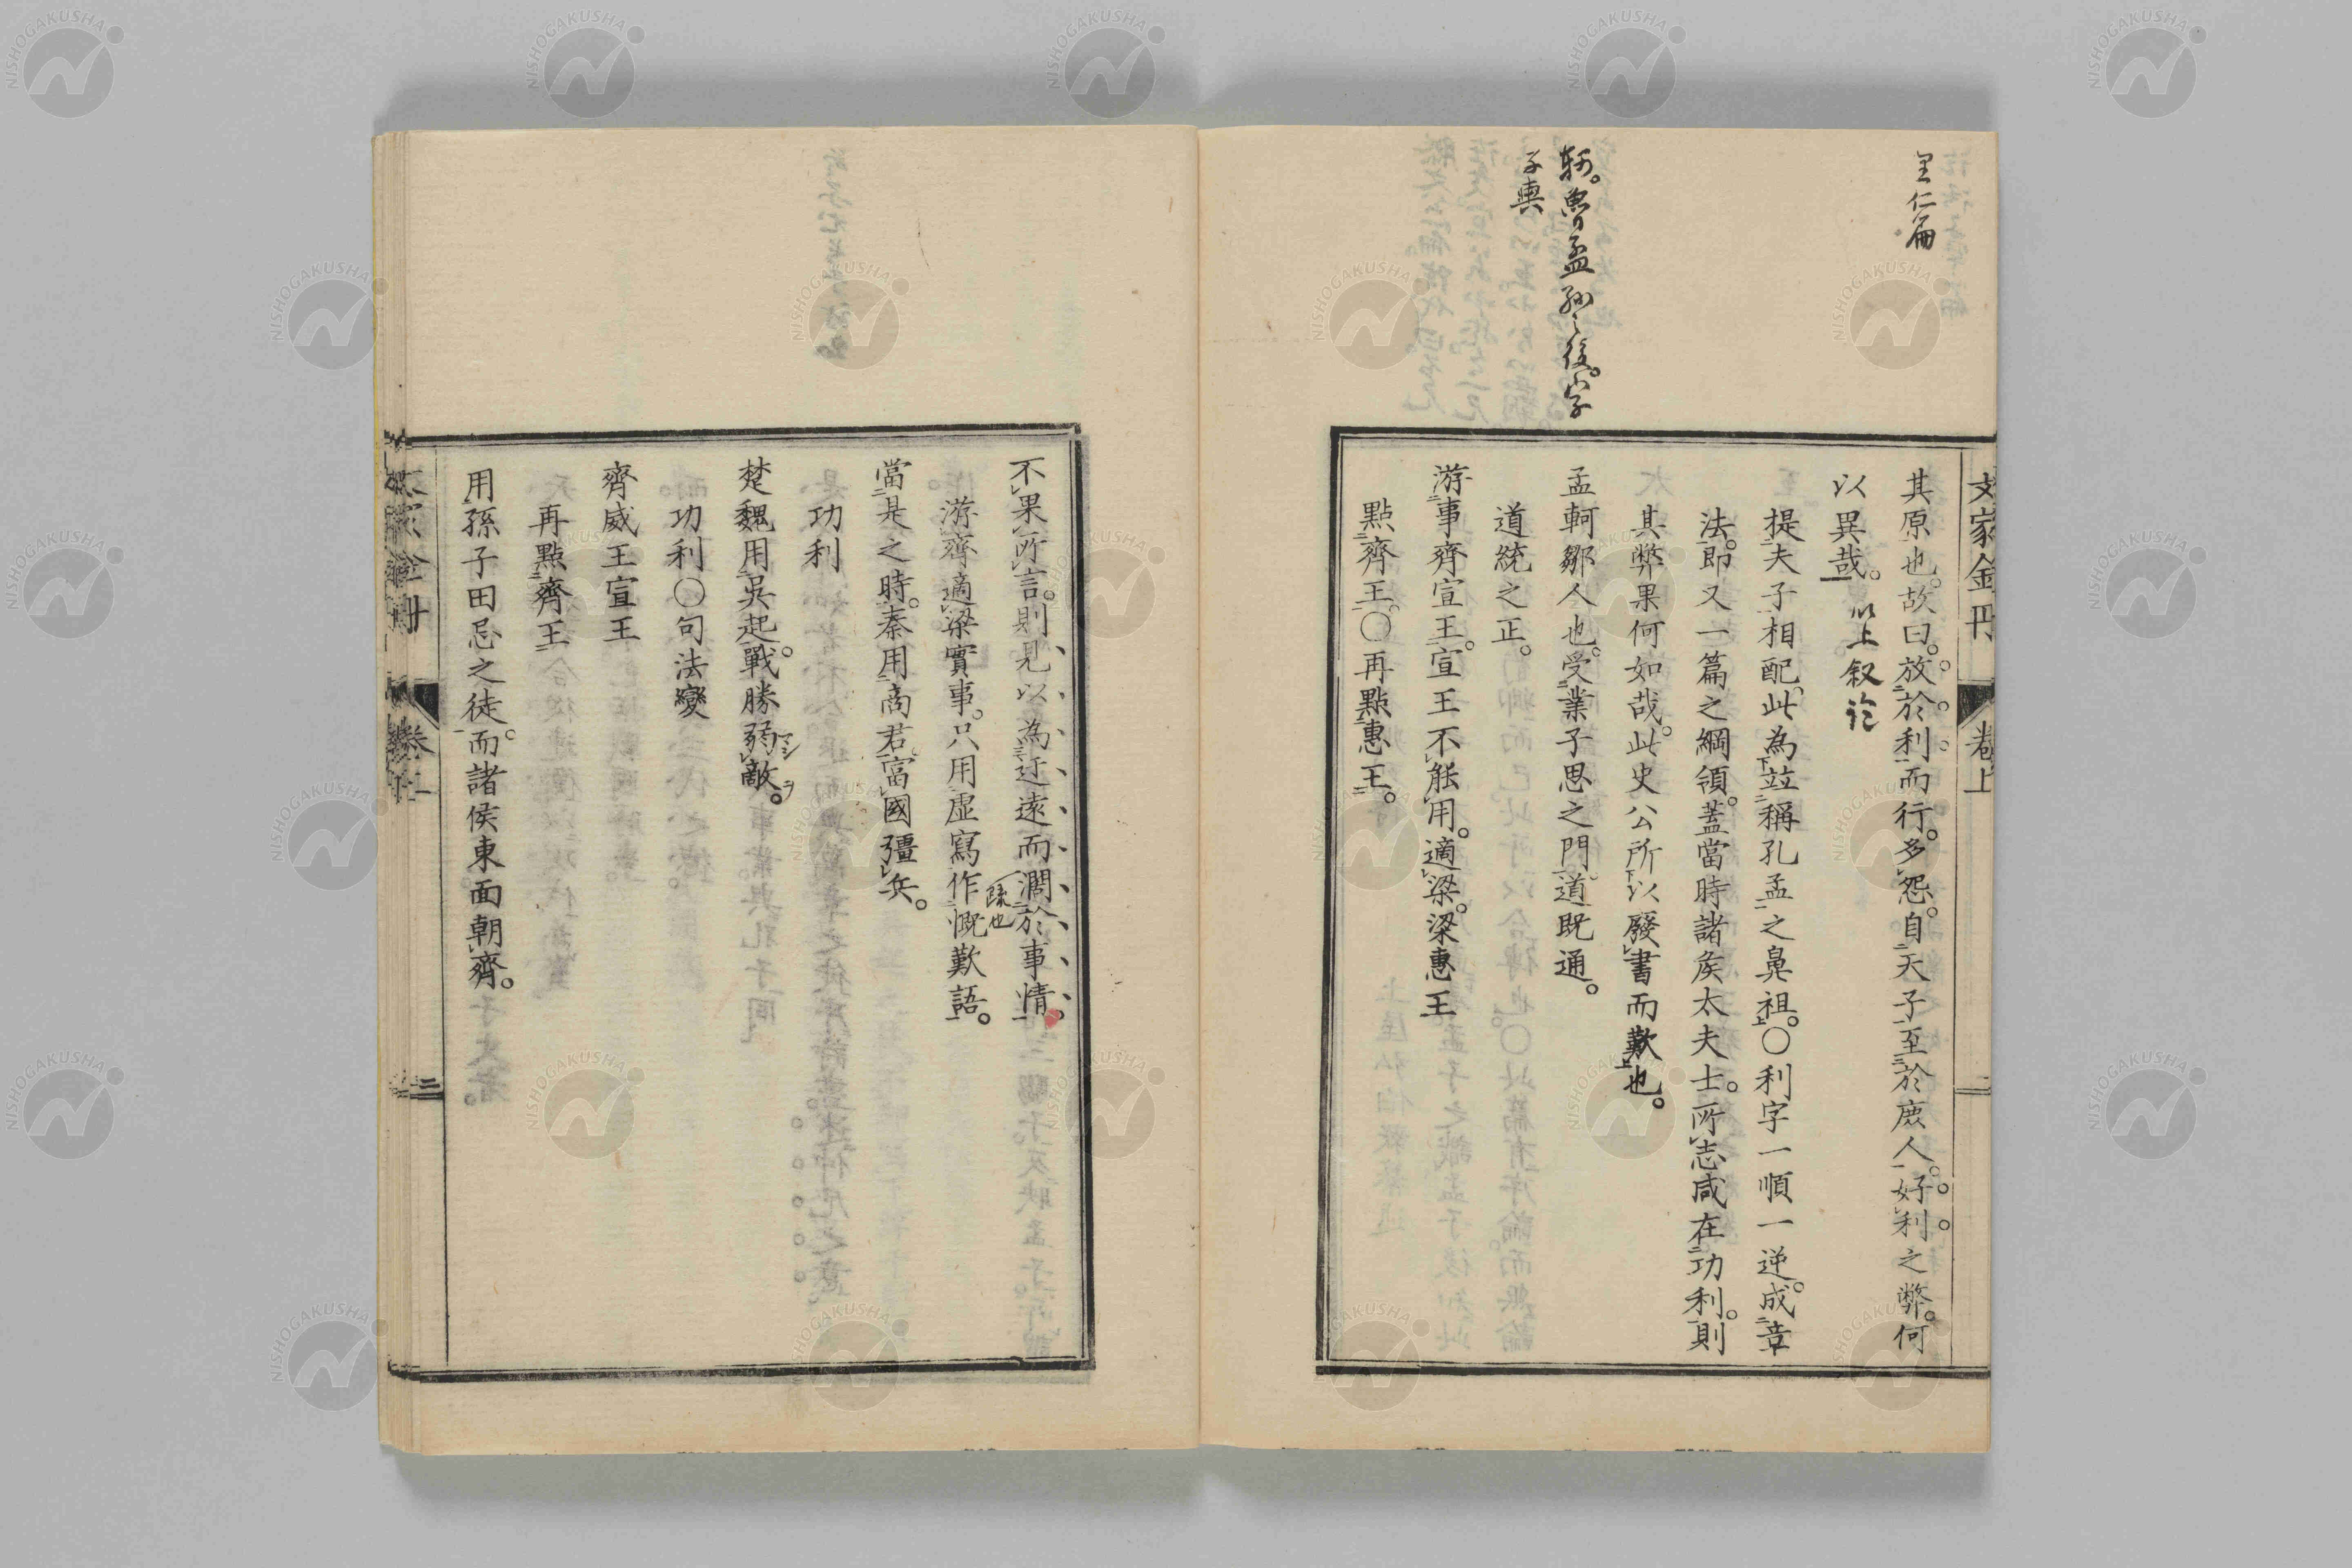 里仁篇
軻。魯孟孫之後。字
子輿
文家金丹 卷上
其原也。故曰。放於利而行。多怨。自天子至於庶人。好利之弊。何
以異哉。以上叙論
提夫子相配、此為竝稱孔孟之鼻祖。〇利字一順一逆。成章
法。即又一篇之綱領。蓋當時諸矦太夫士。所志咸在功利。則
其弊果何如哉。此史公所以發書而歎也。
孟軻鄒人也。受業子思之門。道既通。
道統之正。
游事齊宣王。宣王不能用。適梁。梁惠王
點齊王。〇再點惠王。
不果所言。則見以為迂遠而濶於事情。
踈也
游齊適梁實事。只用虛寫作慨歎語。
當是之時。秦用商君。富國彊兵。
功利
楚魏用吳起。戰勝弱敵。
マシ ヲ
功利〇句法變
齊威王宣王
再點齊王
用孫子田忌之徒。而諸侯東面朝齊。
二
NISHOGAKUSHA